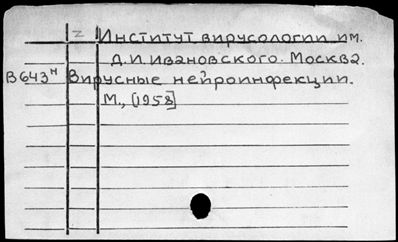 z Институт вирусологии им.
Д.И. Ивановского. Москва.
В643н Вирусные нейроинфекции.
М., [1958]